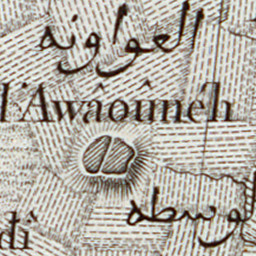 العواونه
l'Awâoûnéh
لوسطه
dî